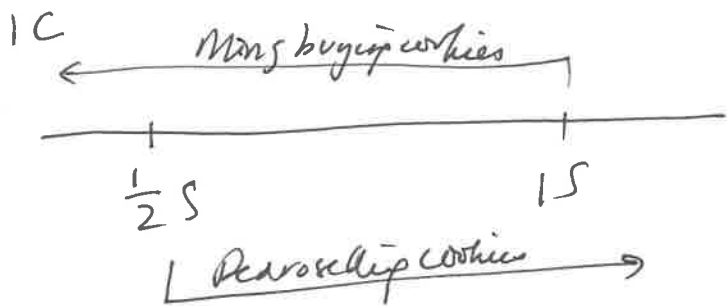 1C
Ming buying cookies
1/2 S
1S
Pedro selling cookies